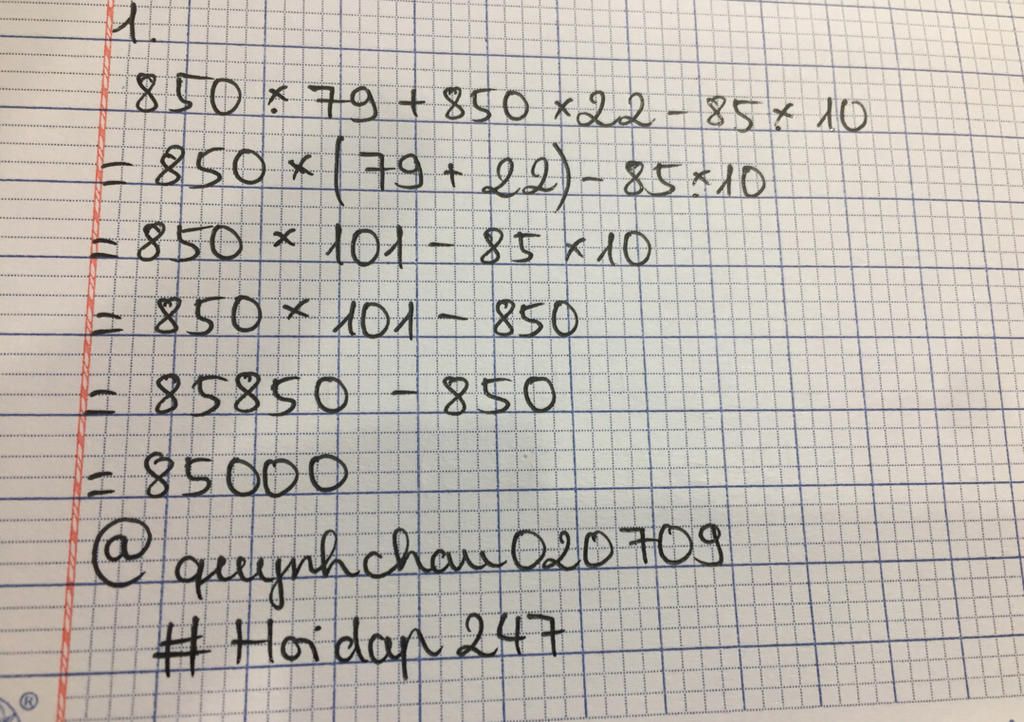 1.
850 × 79 + 850 × 22 - 85 × 10
= 850 × (79 + 22) - 85 × 10
= 850 × 101 - 85 × 10
= 850 × 101 - 850
= 85850 - 850
= 85000
@ quynhchau020709
# Hoidap 247
®